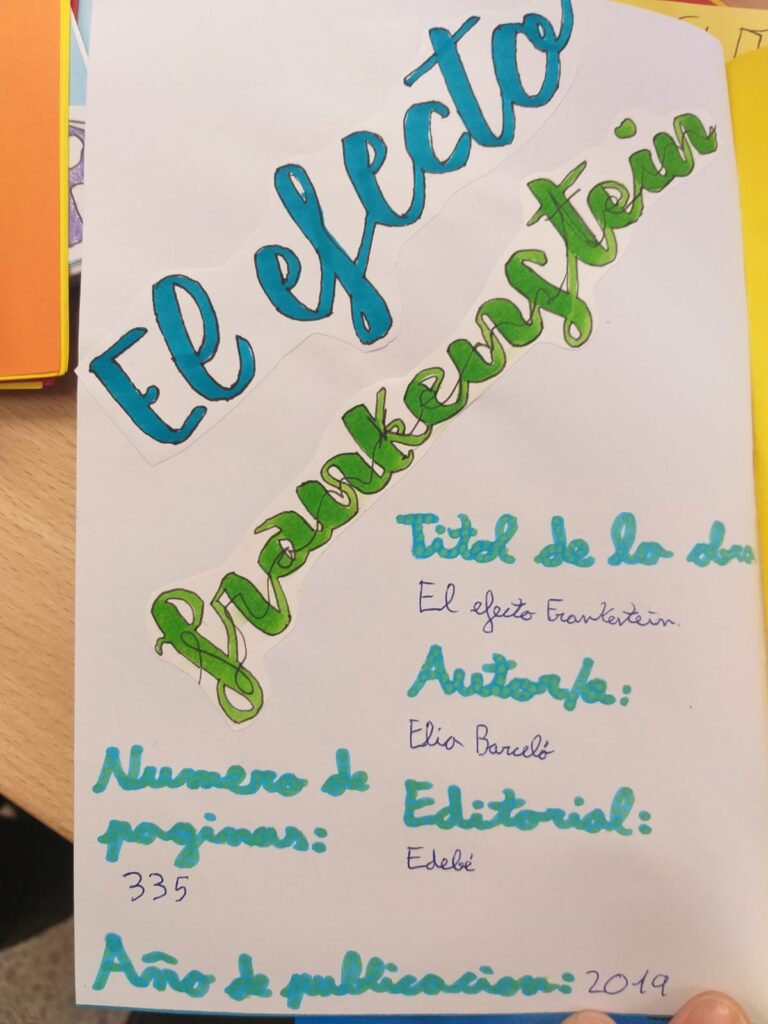 El efecto
frankenstein
Titol de la obra
El efecto Frankestein.
Autor/a:
Elia Barceló
Editorial:
Edebé
Numero de
paginas:
335
Año de publicacion: 2019